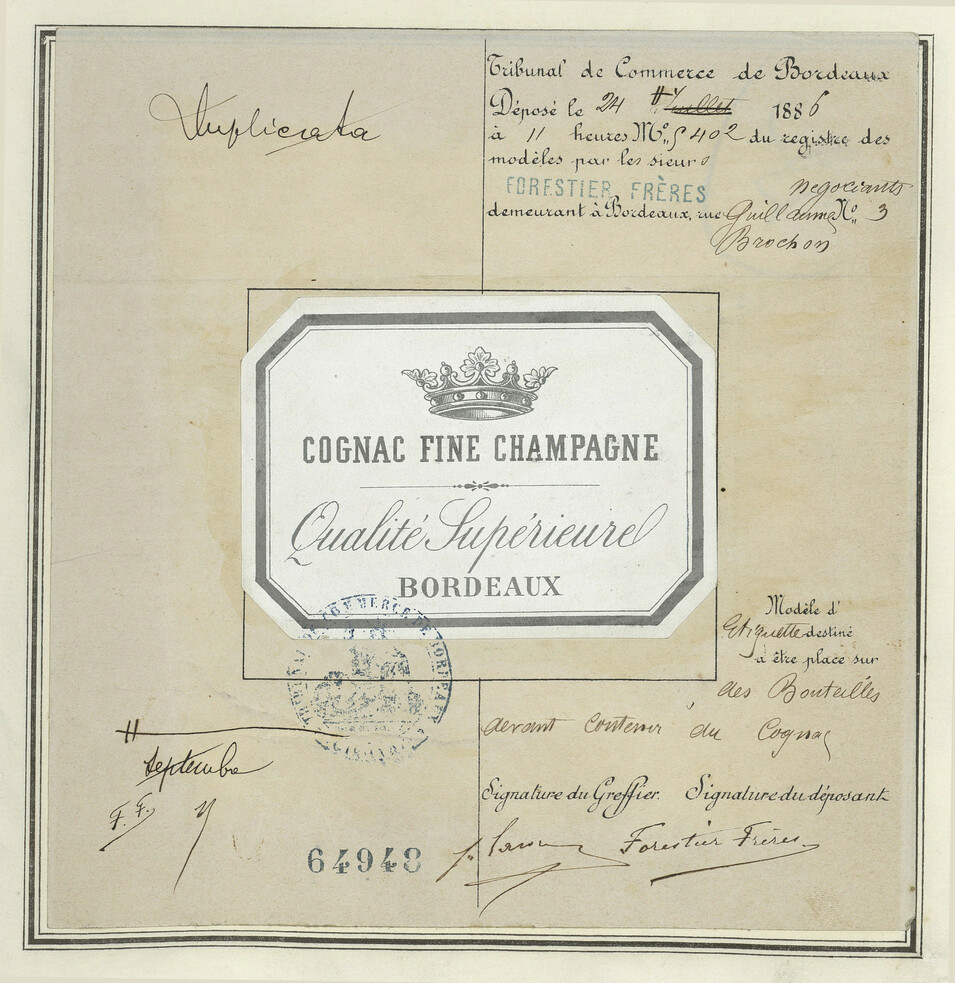 Duplicata
Tribunal de Commerce de Bordeaux
Déposé le 24 # Juillet 1886
à 11 heures Nº 5402 du registre des
modèles par les sieurs
FORESTIER FRÈRES négociants
demeurant à Bordeaux, rue Guillaume Nº 3
Brochon
COGNAC FINE CHAMPAGNE
Qualité Supérieure
BORDEAUX
TRIBUNAL DE COMMERCE DE BORDEAUX
Modèle d'
Etiquette destiné
à être place sur
des Bouteilles
devant contenir du Cognac
#
Septembre
F. F.
Signature du Greffier. Signature du déposant
Forestier Frères
64948